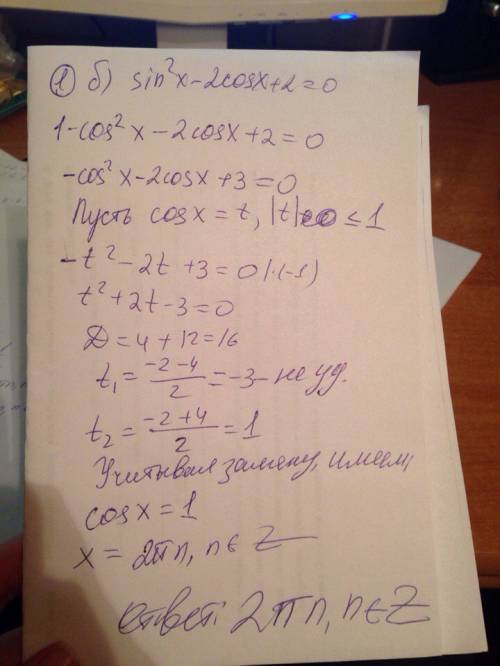 ① б) sin²x-2cosx+2=0
1-cos²x-2cosx+2=0
-cos²x-2cosx+3=0
Пусть cosx=t, |t| ≤ 1
-t²-2t+3=0 |·(-1)
t²+2t-3=0
D=4+12=16
t₁=(-2-4)/2=-3-не уд.
t₂=(-2+4)/2=1
Учитывая замену, имеем,
cosx=1
x=2πn, n∈Z
Ответ: 2πn, n∈Z